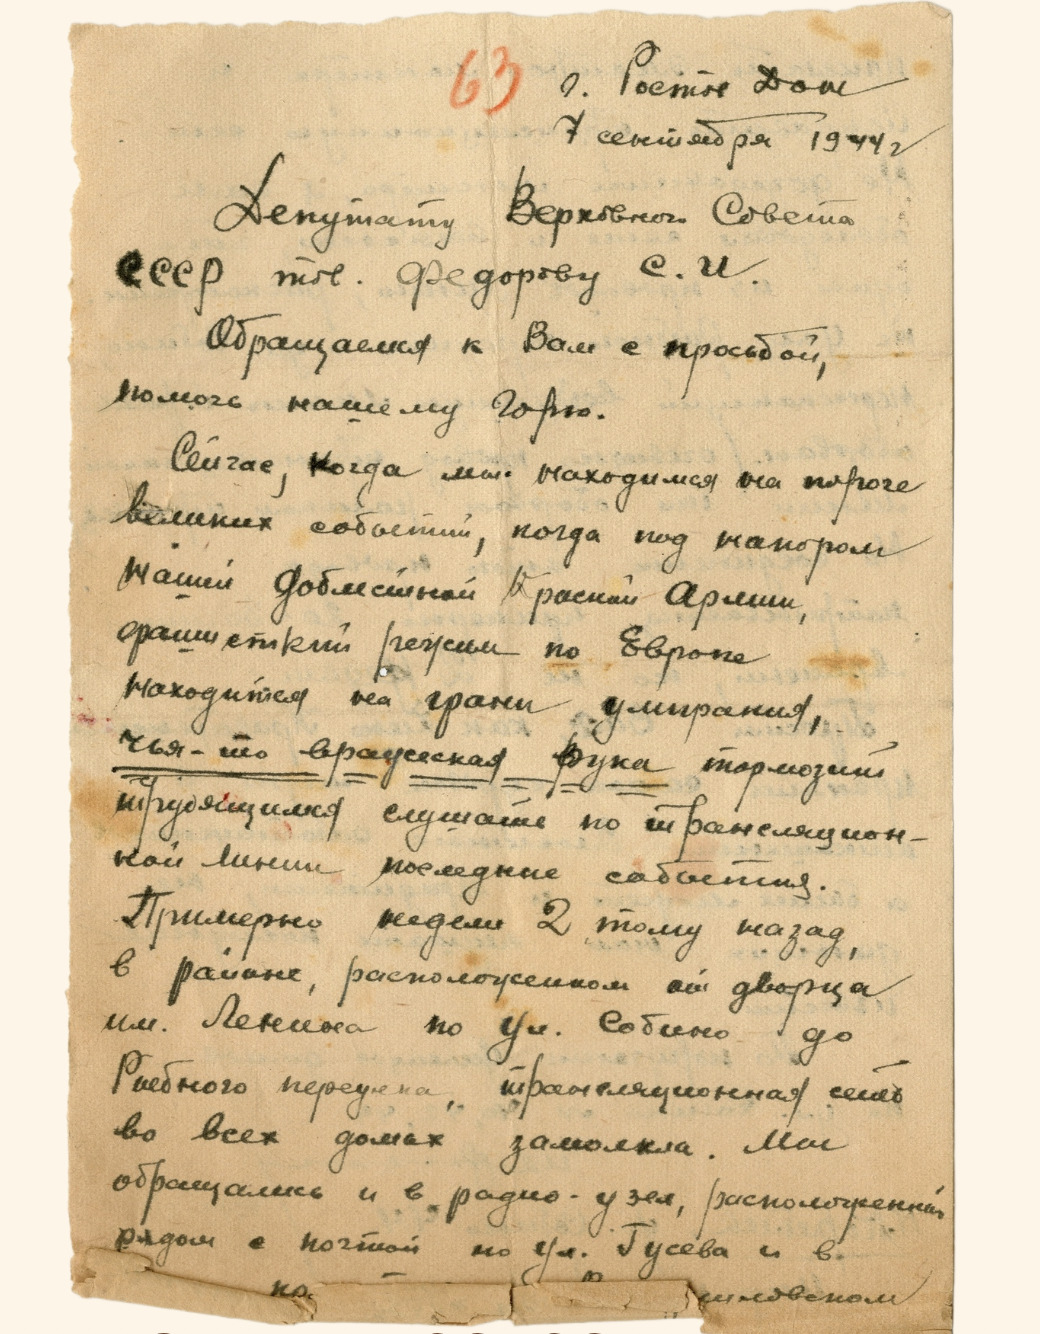 63
г. Ростов Дон
7 сентября 1944 г
Депутату Верховного Совета
СССР тов. Федорову С.И.
Обращаемся к Вам с просьбой,
помочь нашему горю.
Сейчас, когда мы находимся на пороге
великих событий, когда под напором
нашей доблестной Красной Армии,
фашистский режим по Европе
находится на грани умирания,
чья-то вражеская рука тормозит
трудящимся слушать по трансляцион-
ной линии последние события.
Примерно недели 2 тому назад,
в районе, расположенном от дворца
им. Ленина по ул. Собино до
Рыбного переулка, трансляционная сеть
во всех домах замолкла. Мы
обращались и в радио-узел, расположенный
рядом с почтой по ул. Гусева и в